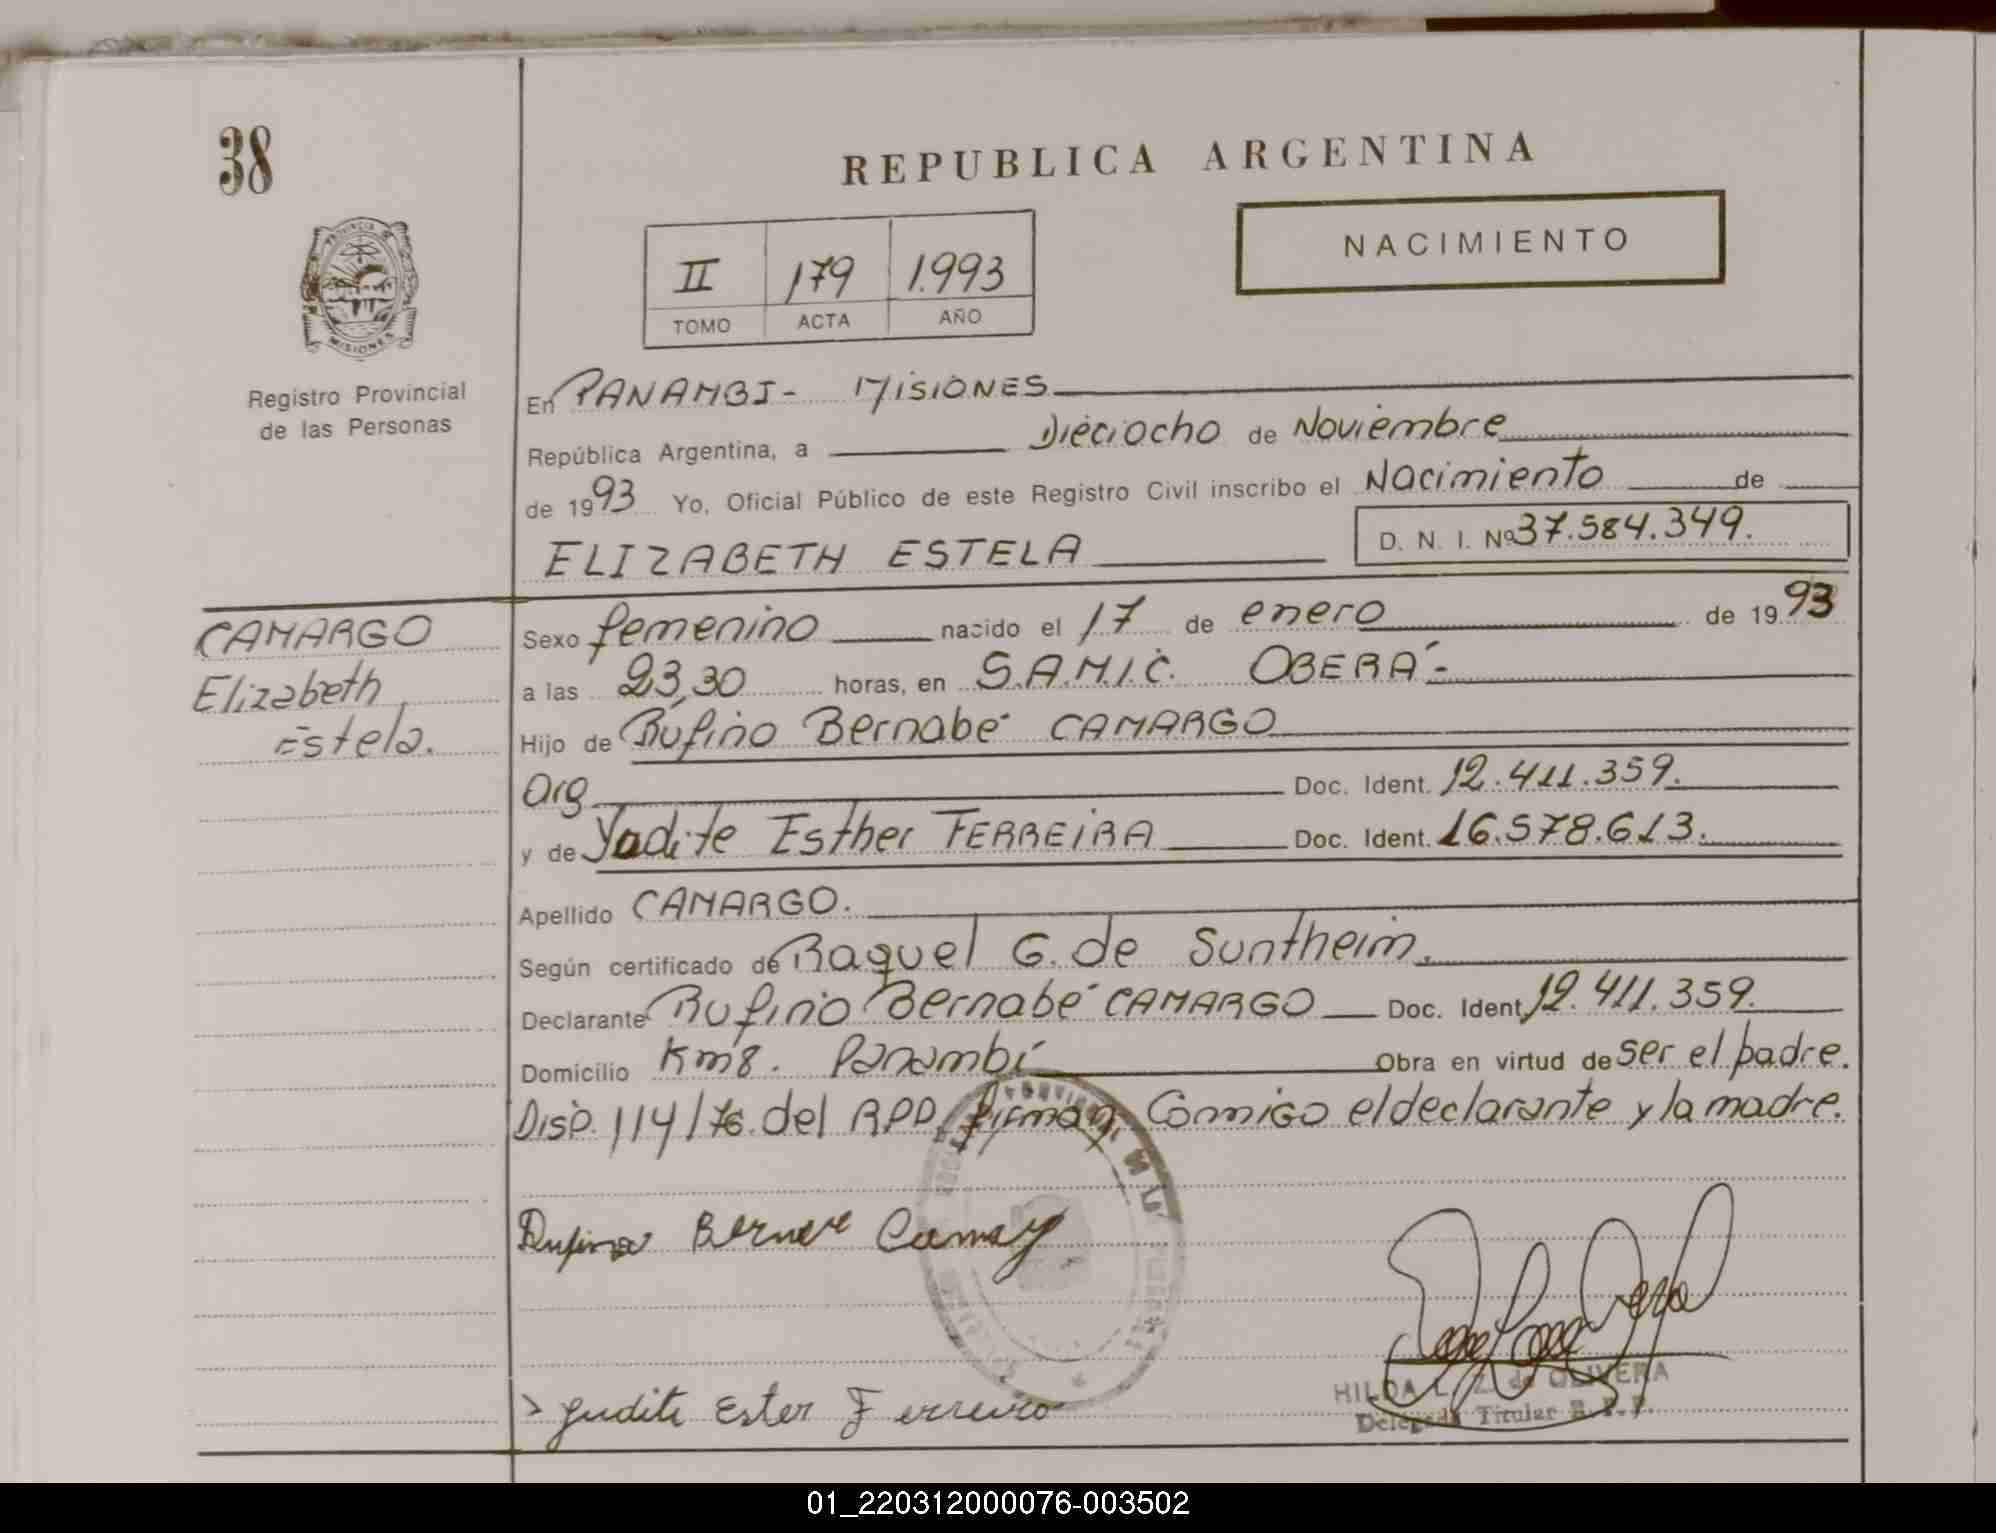 38
REPUBLICA ARGENTINA
NACIMIENTO
II 179 1.993
TOMO ACTA AÑO
PROVINCIA DE MISIONES
Registro Provincial
de las Personas
En PANAMBI - MISIONES
República Argentina, a Dieciocho de Noviembre
de 1993 Yo, Oficial Público de este Registro Civil inscribo el Nacimiento de
ELIZABETH ESTELA D. N. I. Nº 37.584.349.
CAMARGO
Elizabeth
Estela.
Sexo femenino nacido el 17 de enero de 1993
a las 23,30 horas, en S.A.M.I.C. OBERÁ -
Hijo de Rufino Bernabé CAMARGO
Arg Doc. Ident. 12.411.359.
y de Yudite Esther FERREIRA Doc. Ident. 16.578.613.
Apellido CAMARGO.
Según certificado de Raquel G. de Suntheim.
Declarante Rufino Bernabé CAMARGO Doc. Ident. 12.411.359.
Domicilio Km 8. Panambí Obra en virtud de ser el padre.
Disp. 114/76. del RPP firman Conmigo el declarante y la madre.
Rufino Berneve
> Judite Ester Ferreira
HILDA L. Z. de OLIVERA
Delegada Titular R. P. P.
01_220312000076-003502